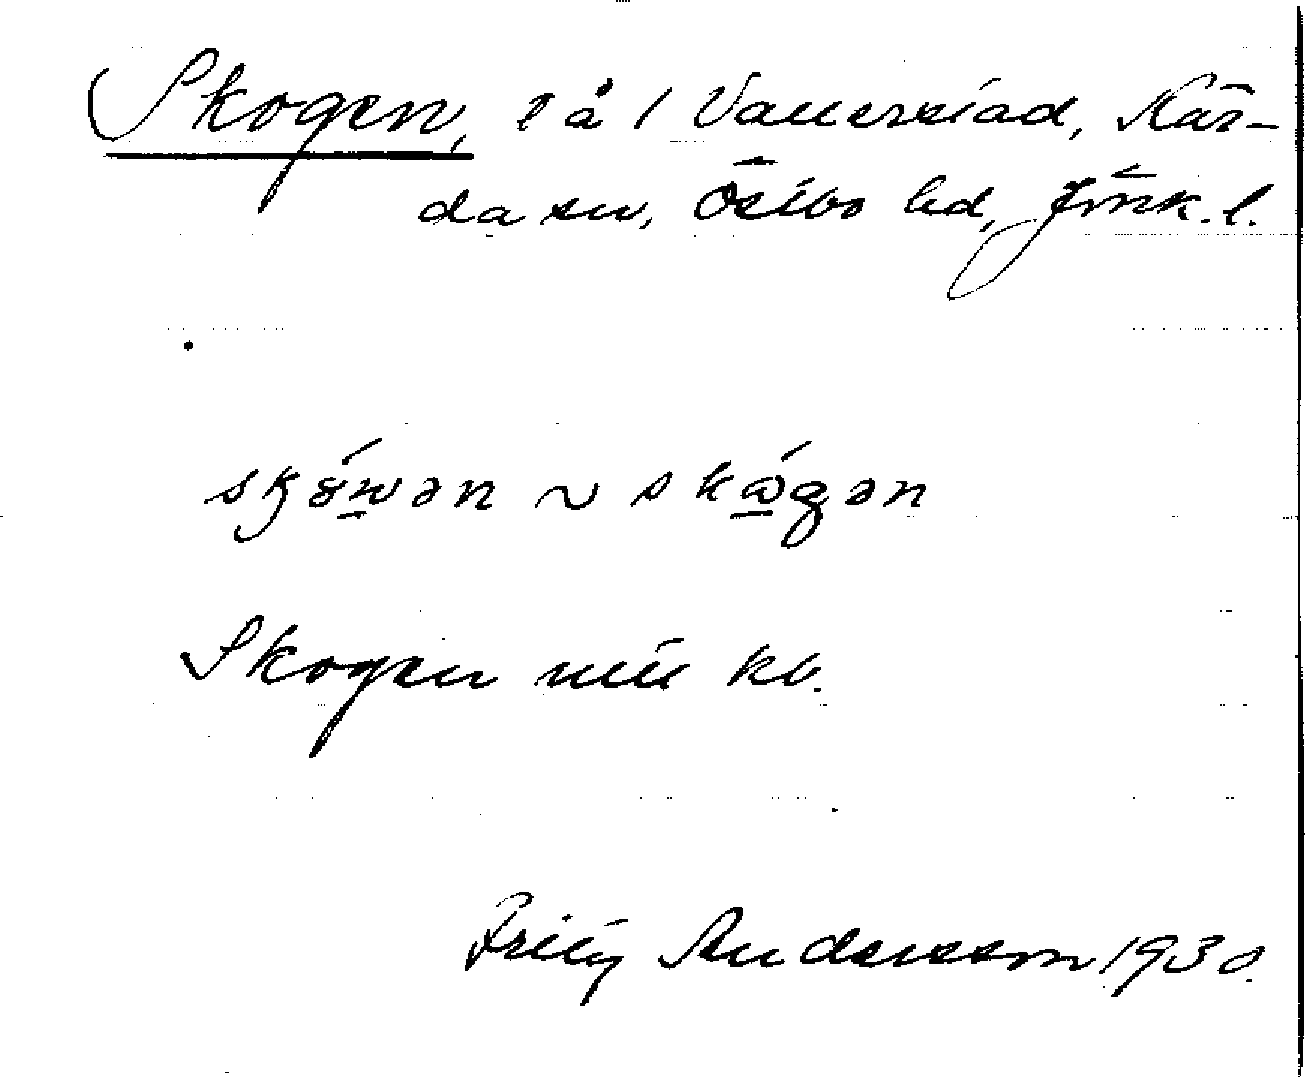 Skogen, l å 1 Vallerstad, Kär-
da sn, Östbo hd, Jönk. l.
skówən ~ skågən
Skogen mtl kb.
Fritz Andersson 1930.